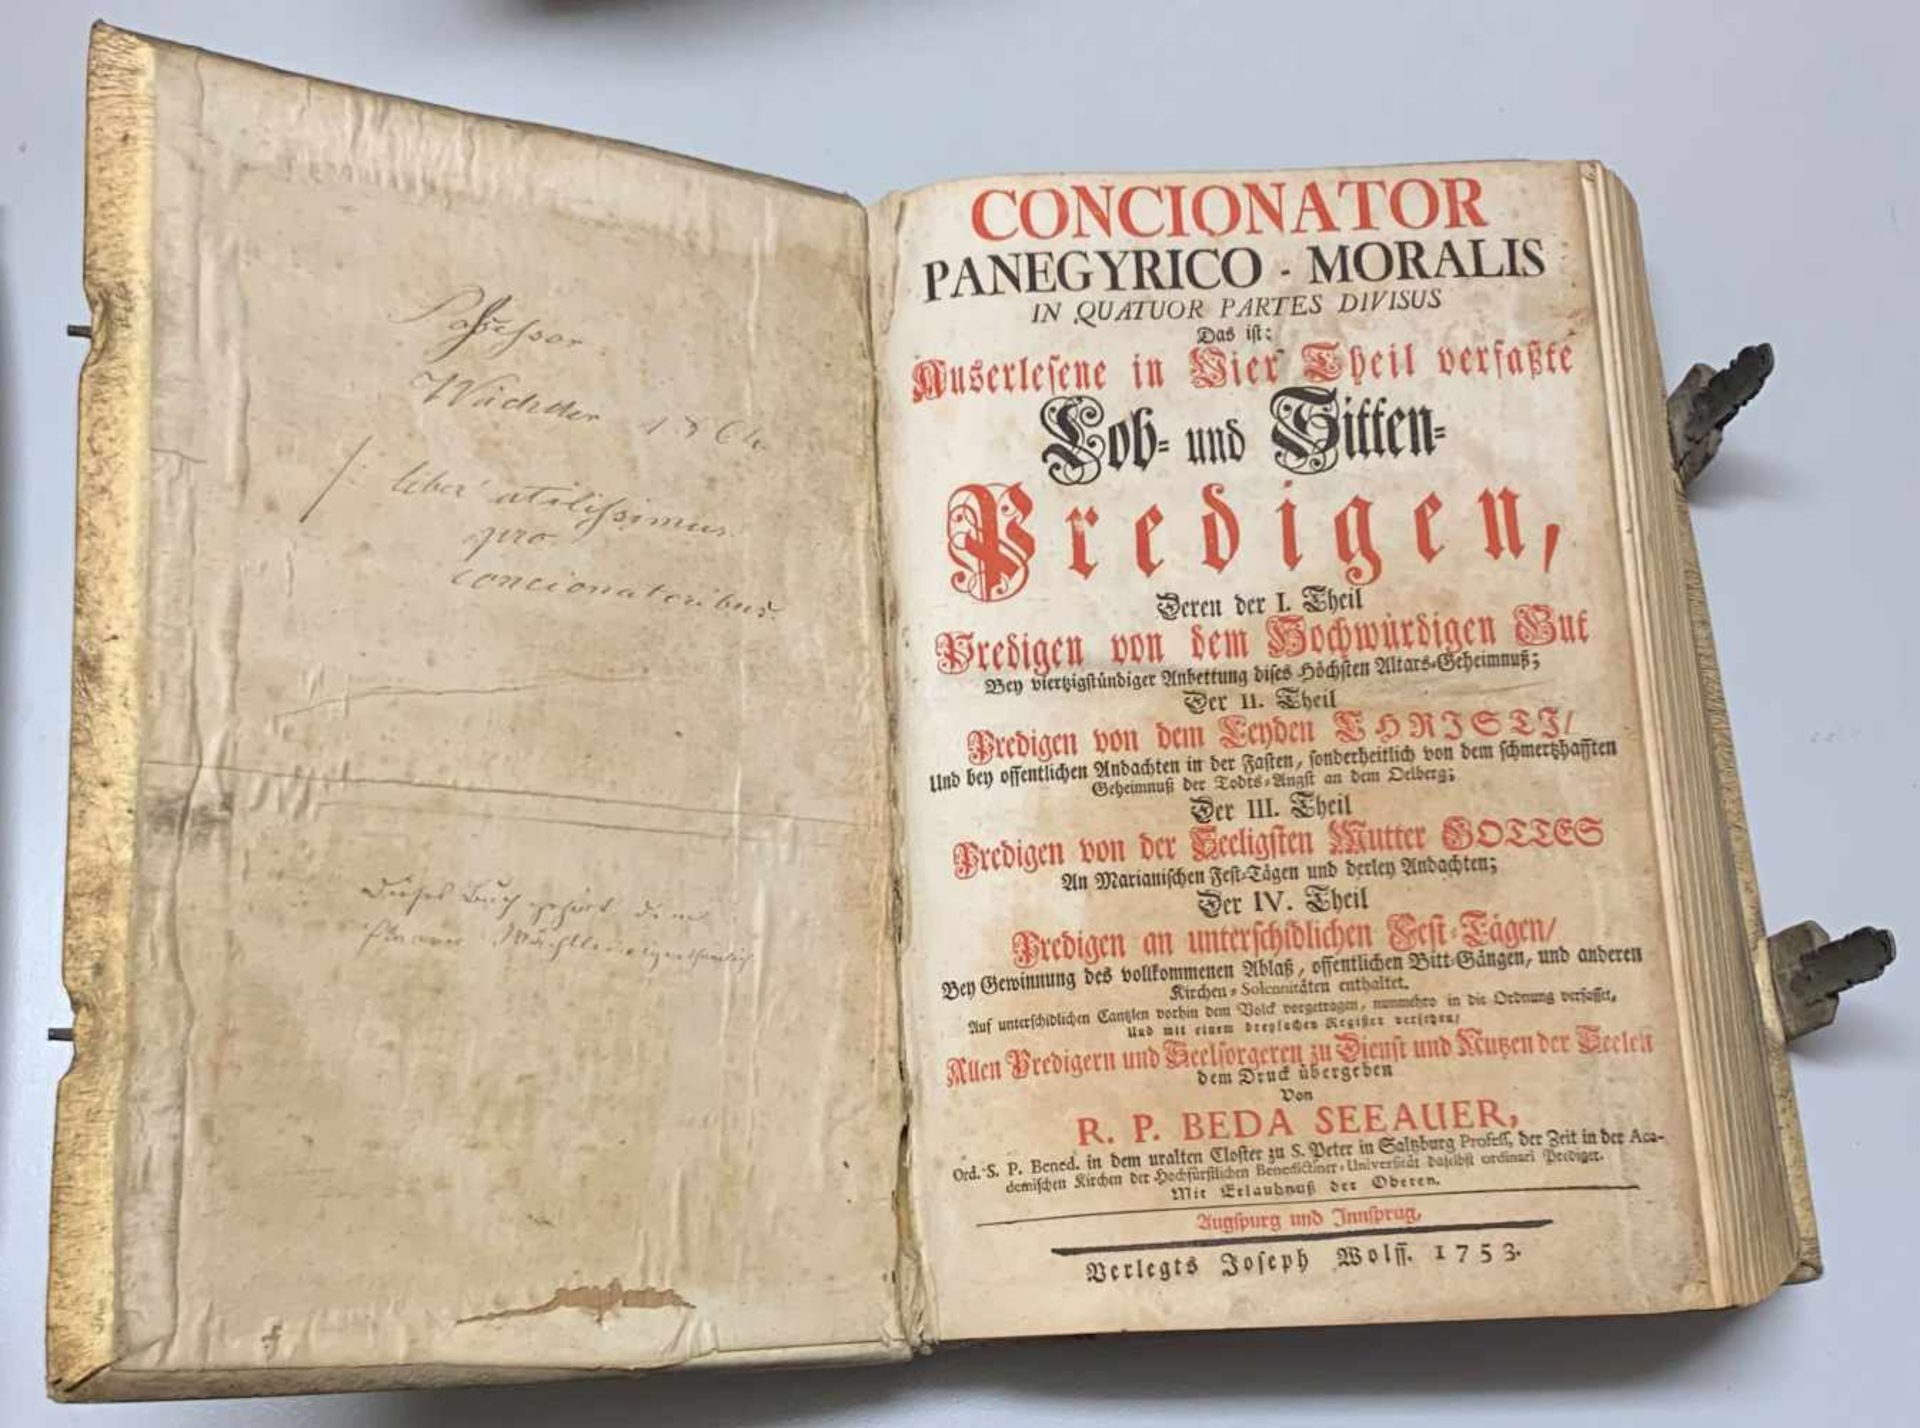 Possessor
Wächter 1864.
/: liber utilissimus
pro
concionatoribus.
Dieses Buch gehört dem
Pfarrer Wächter eigenthümlich
CONCIONATOR
PANEGYRICO - MORALIS
IN QUATUOR PARTES DIVISUS
Das ist:
Auserlesene in Vier Theil verfaßte
Lob- und Sitten-
Predigen,
Deren der I. Theil
Predigen von dem Hochwürdigen Gut
Bey viertzigstündiger Anbettung dises Höchsten Altars-Geheimnuß;
Der II. Theil
Predigen von dem Leyden CHRISTI/
Und bey offentlichen Andachten in der Fasten, sonderheitlich von dem schmertzhafften
Geheimnuß der Todts-Angst an dem Oelberg;
Der III. Theil
Predigen von der Seeligsten Mutter GOTTES
An Marianischen Fest-Tägen und derley Andachten;
Der IV. Theil
Predigen an unterschidlichen Fest-Tägen/
Bey Gewinnung des vollkommenen Ablaß, offentlichen Bitt-Gängen, und anderen
Kirchen-Solennitäten enthaltet.
Auf unterschidlichen Cantzlen vorhin dem Volck vorgetragen, nunmehro in die Ordnung verfasset,
Und mit einem dreyfachen Register versehen/
Allen Predigern und Seelsorgeren zu Dienst und Nutzen der Seelen
dem Druck übergeben
Von
R. P. BEDA SEEAUER,
Ord. S. P. Bened. in dem uralten Closter zu S. Peter in Saltzburg Profess, der Zeit in der Aca-
demischen Kirchen der Hochfürstlichen Benedictiner-Universität daselbst ordinari Prediger.
Mit Erlaubnuß der Oberen.
Augspurg und Innsprug,
Verlegts Joseph Wolff. 1753.